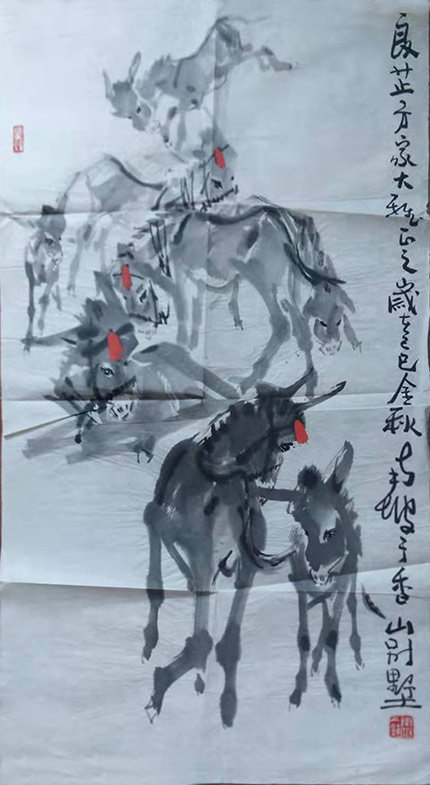 良芷方家大雅正之歲在乙巳金秋于香山别墅